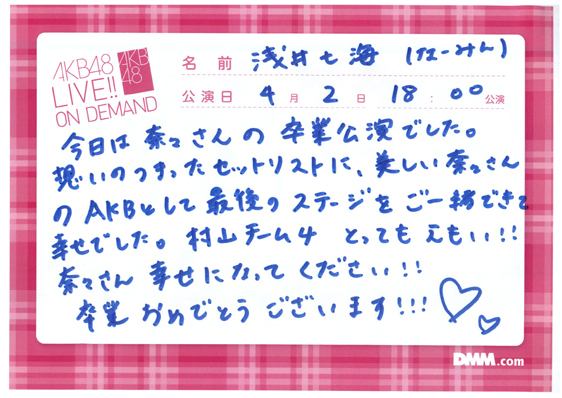 AKB48
LIVE!!
ON DEMAND
AKB
48
名前 浅井七海 (なーみん)
公演日 4月2日 18:00公演
今日は奈々さんの卒業公演でした。
想いのつまったセットリストに、美しい奈々さん
のAKBとして最後のステージをご一緒できて
幸せでした。村山チーム4 とってもえもい!!
奈々さん 幸せになってください!!
卒業おめでとうございます!!!
DMM.com